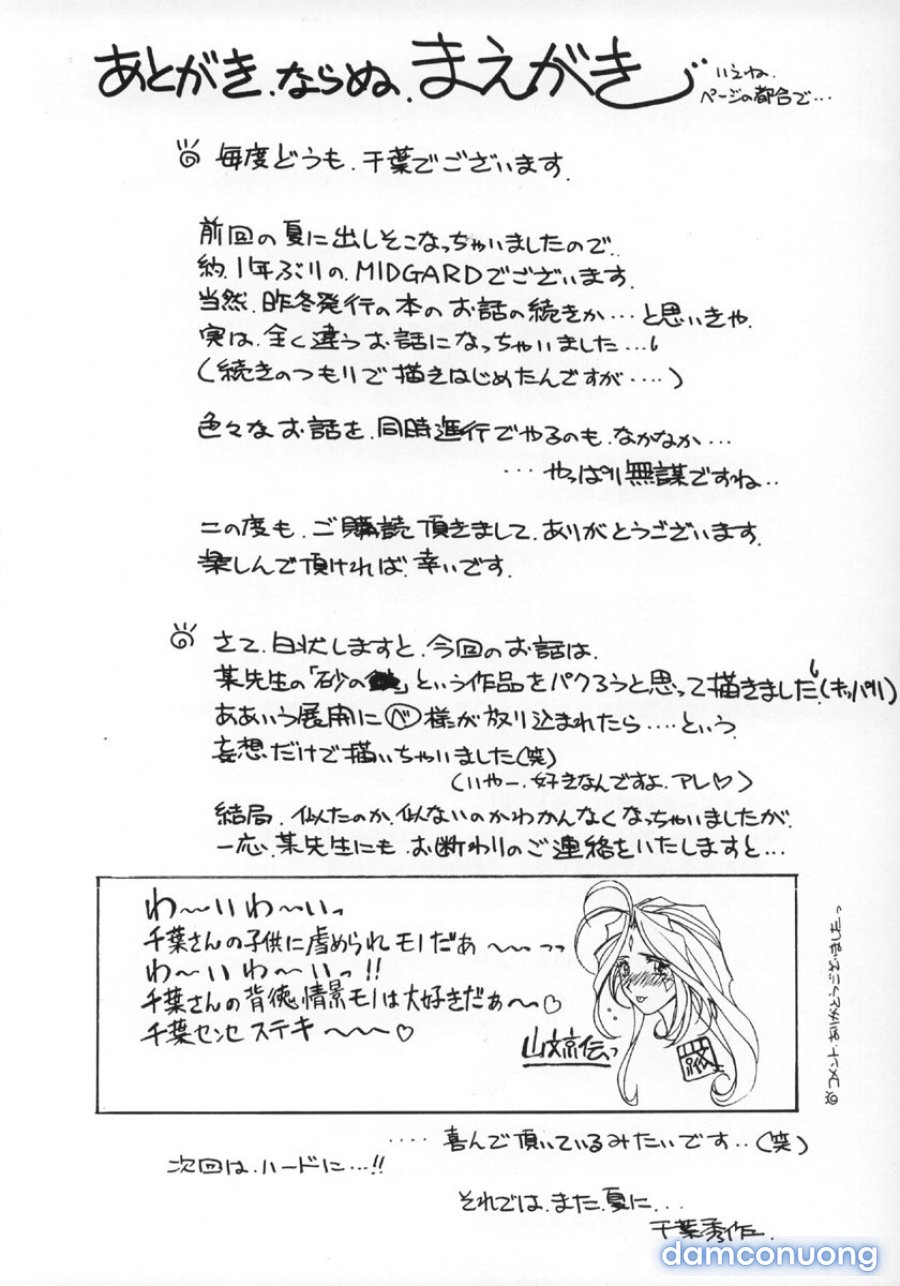 あとがき、ならぬ、まえがき
いえね、
ページの都合で…
毎度どうも、千葉でございます。
前回の夏に出しそこなっちゃいましたので、
約、1年ぶりの、MIDGARDでございます。
当然、昨冬発行の本のお話の続きか…と思いきや、
実は、全く違うお話になっちゃいました…
(続きのつもりで描きはじめたんですが‥‥)
色々なお話を、同時進行でやるのも、なかなか…
…やっぱり無謀ですね‥
この度も、ご購読頂きまして、ありがとうございます。
楽しんで頂ければ、幸いです。
さて、白状しますと、今回のお話は、
某先生の「砂の」という作品をパクろうと思って描きました。(キッパリ)
ああいう展開にべ様が放り込まれたら‥‥という、
妄想だけで描いちゃいました(笑)
(いやー、好きなんですよ、アレ♡)
結局、似たのか、似ないのかわかんなくなっちゃいましたが、
一応、某先生にも、お断わりのご連絡をいたしますと…
わ〜いわ〜いっ
千葉さんの子供に虐められモノだぁ〜〜っっ
わ〜いわ〜いっ!!
千葉さんの背徳情景モノは大好きだぁ〜♡
千葉センセステキ〜〜〜♡
山文京伝っ
‥‥喜んで頂いているみたいです‥(笑)
次回は、ハードに…!!
それでは、また、夏に…
千葉秀作
damconuong